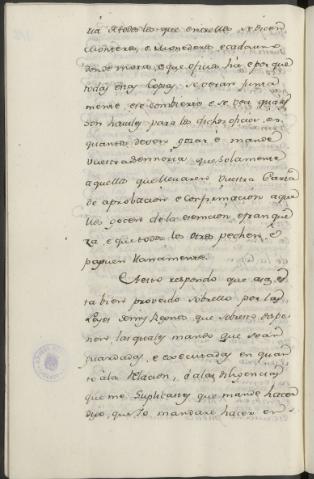 ria de todos los que en ellas se dicen
Monteros, e Monederos e cada uno
donde mora, e que oficio ha, e por que
todas en sy Copia, se veran sumaria
mente, e se sombieren e se vea quales
son habiles para los dichos oficios, en
quantos deven gozar e mande
Vuestra Sennoria que solamente
aquellos que llevaren Vuestra Carta
de aprobacion e Confirmacion aque
llos gocen de la esencion e franque
za, e que todos los otros pechen, e
paguen llanamente.
A esto respondo que asaz es
ta bien proveido sobrello por las
Leyes de mis Regnos que sobresto dispo
nen las quales mando que sean
guardadas, e executadas en quan
to a la Relacion, o a las diligencias
que me Suplicastes que mande hacer
digo, que Yo mandare hacer en